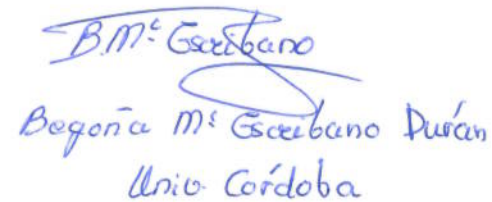 B. Mª Escribano
Begoña Mª Escribano Durán
Univ. Córdoba